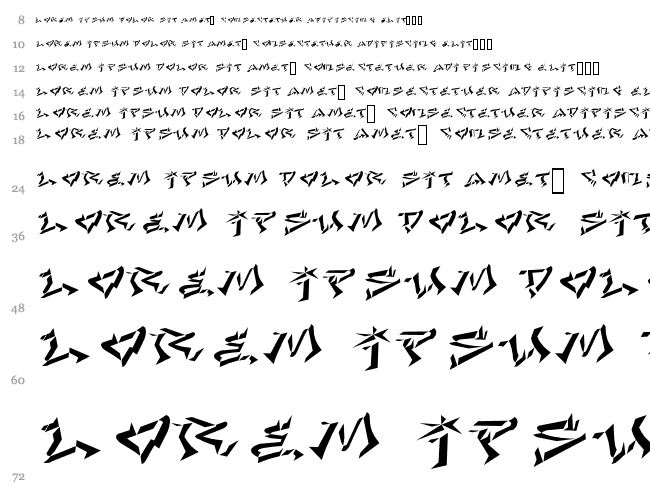 8 LOREM IPSUM DOLOR SIT AMET□ CONSECTETUER ADIPISCING ELIT□□□
10 LOREM IPSUM DOLOR SIT AMET□ CONSECTETUER ADIPISCING ELIT□□□
12 LOREM IPSUM DOLOR SIT AMET□ CONSECTETUER ADIPISCING ELIT□□□
14 LOREM IPSUM DOLOR SIT AMET□ CONSECTETUER ADIPISCING E
16 LOREM IPSUM DOLOR SIT AMET□ CONSECTETUER ADIPISCI
18 LOREM IPSUM DOLOR SIT AMET□ CONSECTETUER A
24 LOREM IPSUM DOLOR SIT AMET□ CONS
36 LOREM IPSUM DOLOR SIT
48 LOREM IPSUM DOL
60 LOREM IPSUM
72 LOREM IPS